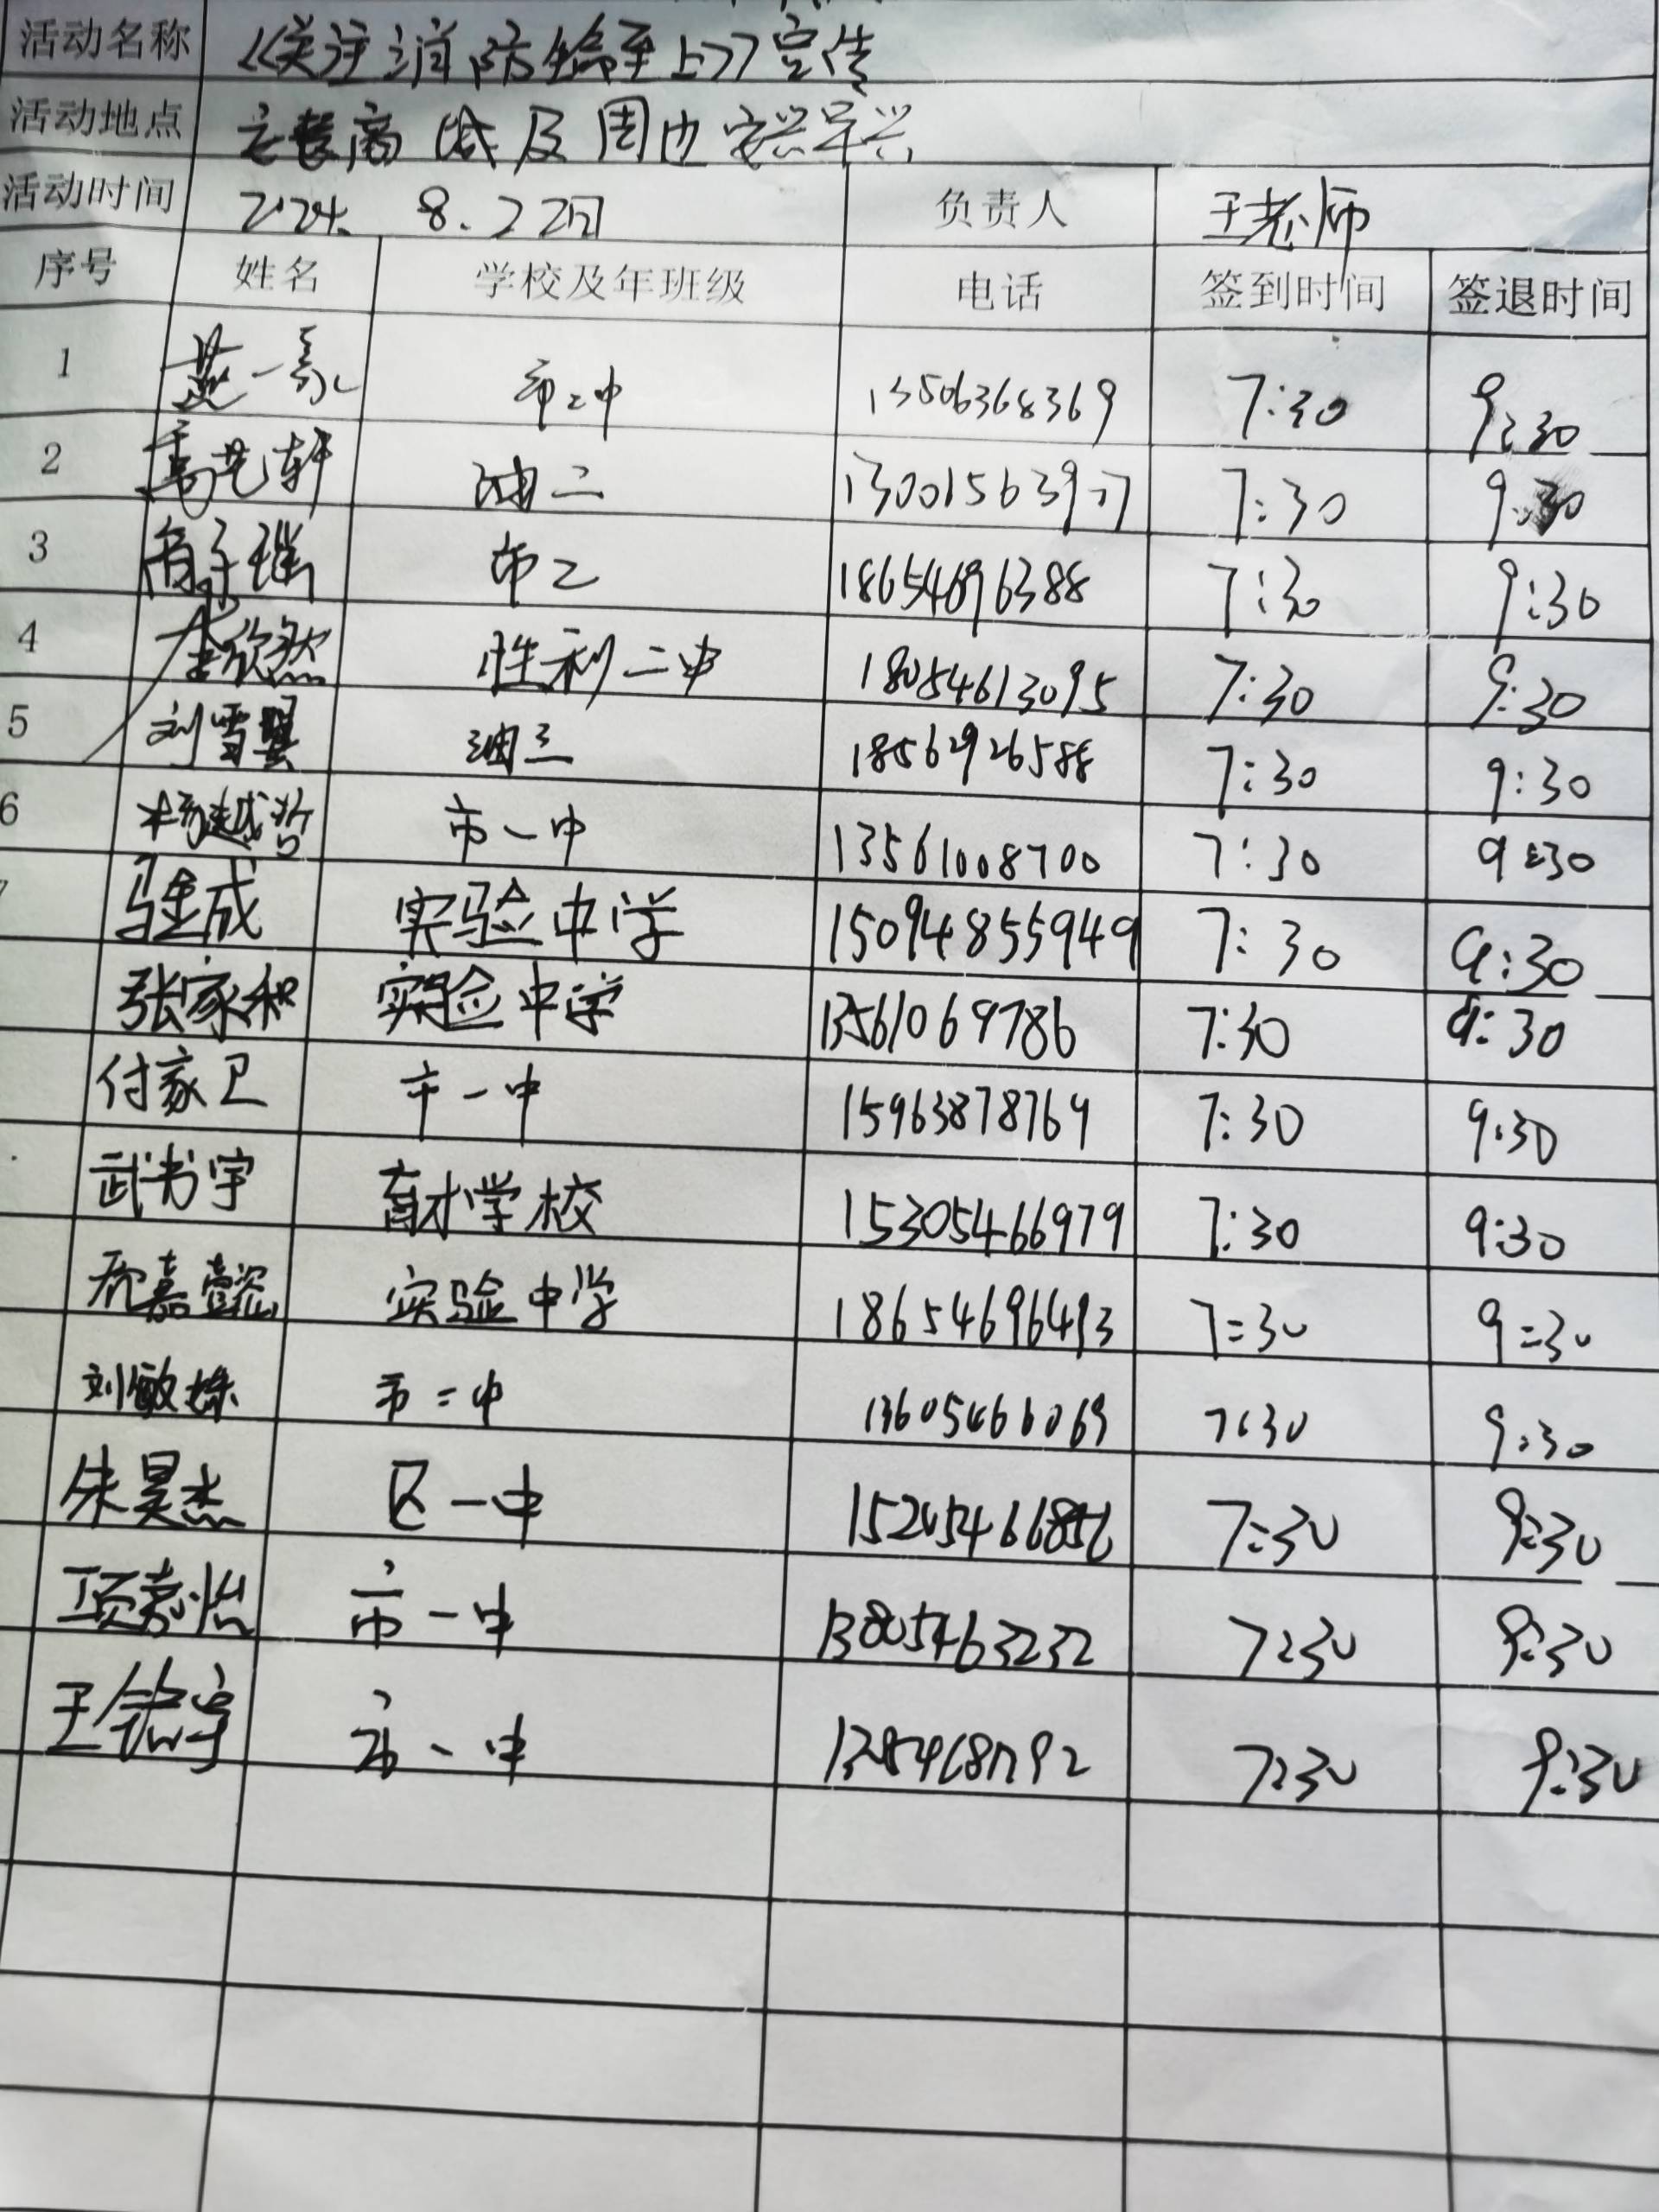 活动名称 《关注消防生命至上》宣传
活动地点 高 及周边
活动时间 2024. 8.22日 负责人 王老师
序号 姓名 学校及年班级 电话 签到时间 签退时间
1 市二中 13506368369 7:30 9:30
2 油二 13001563977 7:30 9:30
3 市二 18654696388 7:30 9:30
4 李欣然 胜利二中 18054613095 7:30 9:30
5 刘雪 油三 18562926588 7:30 9:30
6 杨越 市一中 13561008700 7:30 9:30
7 实验中学 15094855949 7:30 9:30
张家和 实验中学 13561069786 7:30 9:30
付家卫 市一中 15963878769 7:30 9:30
武书宇 育才学校 15305466979 7:30 9:30
嘉懿 实验中学 18654696493 7:30 9:30
刘敏姝 市二中 13605466069 7:30 9:30
朱昊杰 区一中 7:30 9:30
项嘉怡 市一中 13805463232 7:30 9:30
王 宇 市一中 7:30 9:30